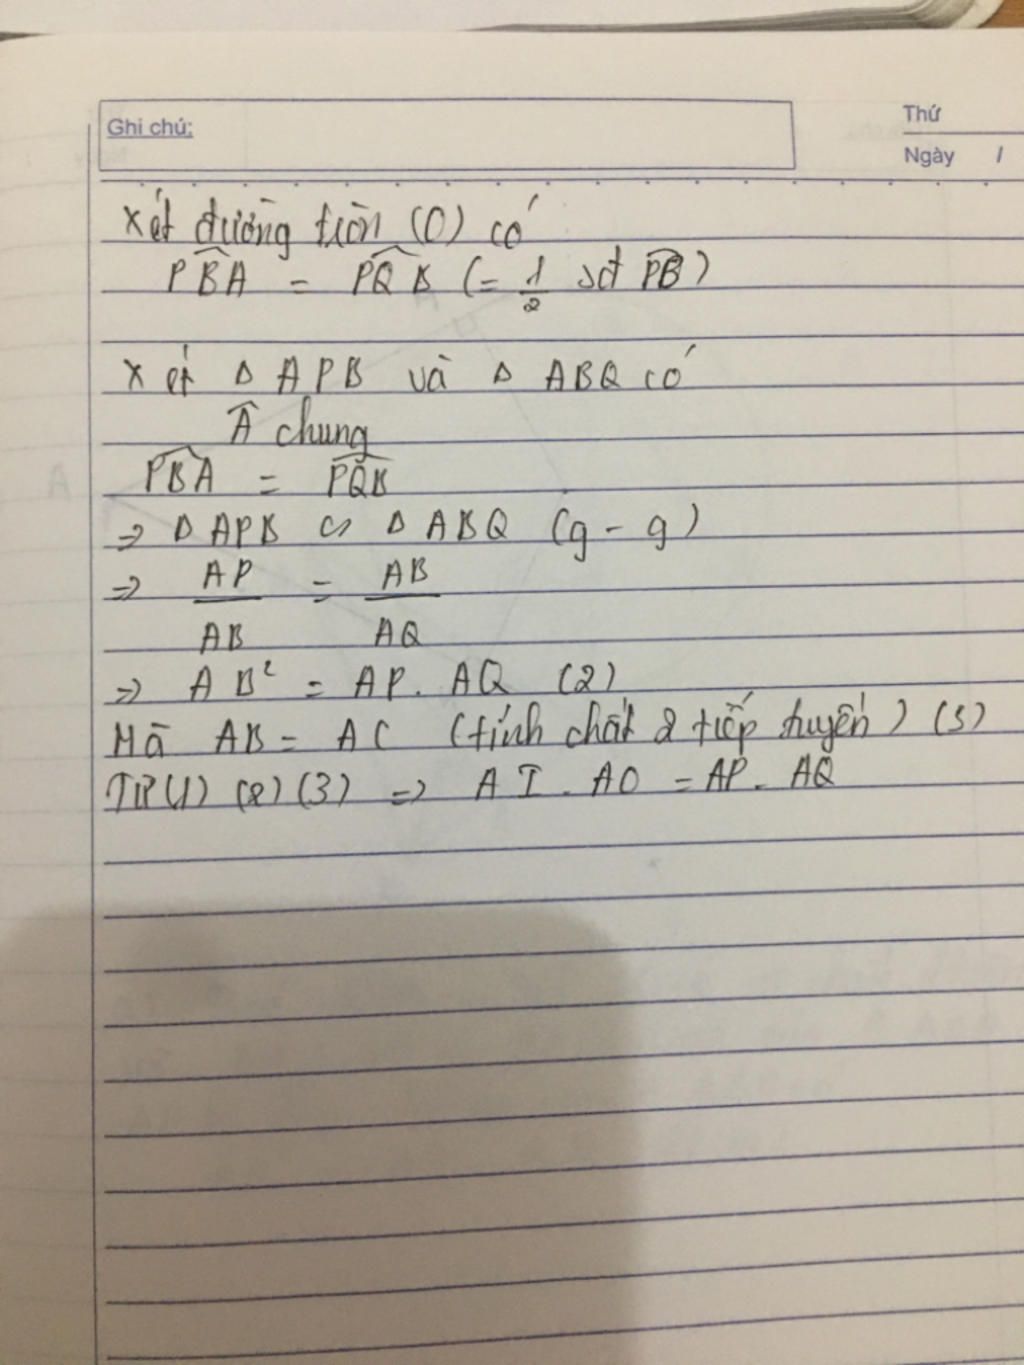 Ghi chú:
Thứ
Ngày /
Xét đường tròn (O) có
PB̂A = PQ̂B (= 1/2 sđ PB)
Xét Δ APB và Δ ABQ có
Â chung
PB̂A = PQ̂B
=> Δ APB ∽ Δ ABQ (g - g)
=> AP/AB = AB/AQ
=> AB² = AP. AQ (2)
Mà AB = AC (tính chất 2 tiếp tuyến) (3)
Từ (1) (2) (3) => AI . AO = AP . AQ